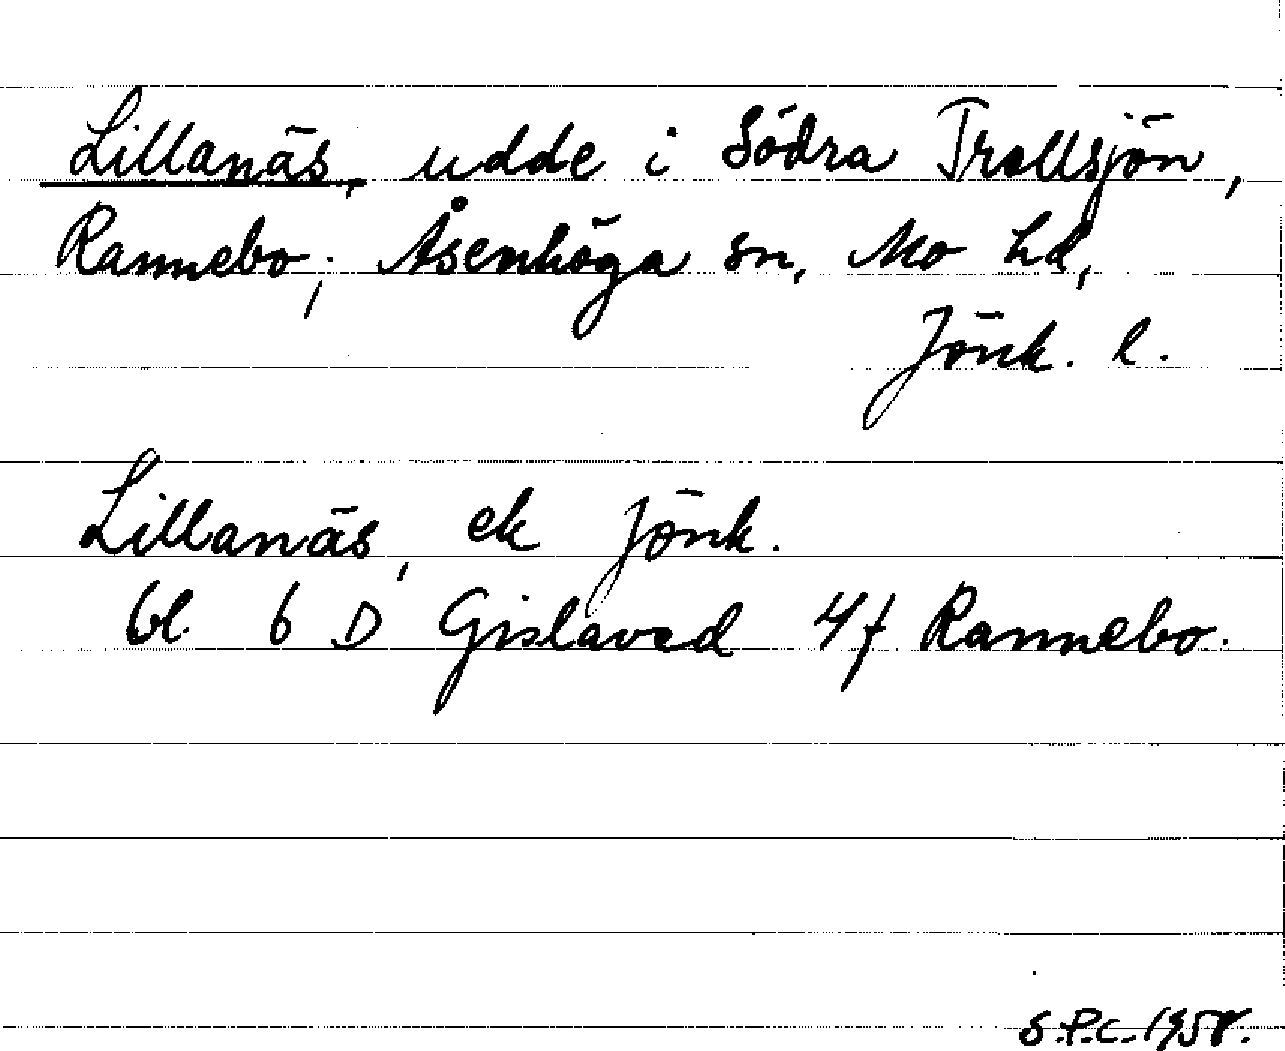 Lillanäs, udde i Södra Trollsjön,
Rannebo; Åsenhöga sn, Mo hd,
Jönk. l.
Lillanäs, ek Jönk.
bl 6 D Gislaved 4f Rannebo.
S.P.C. 1958.